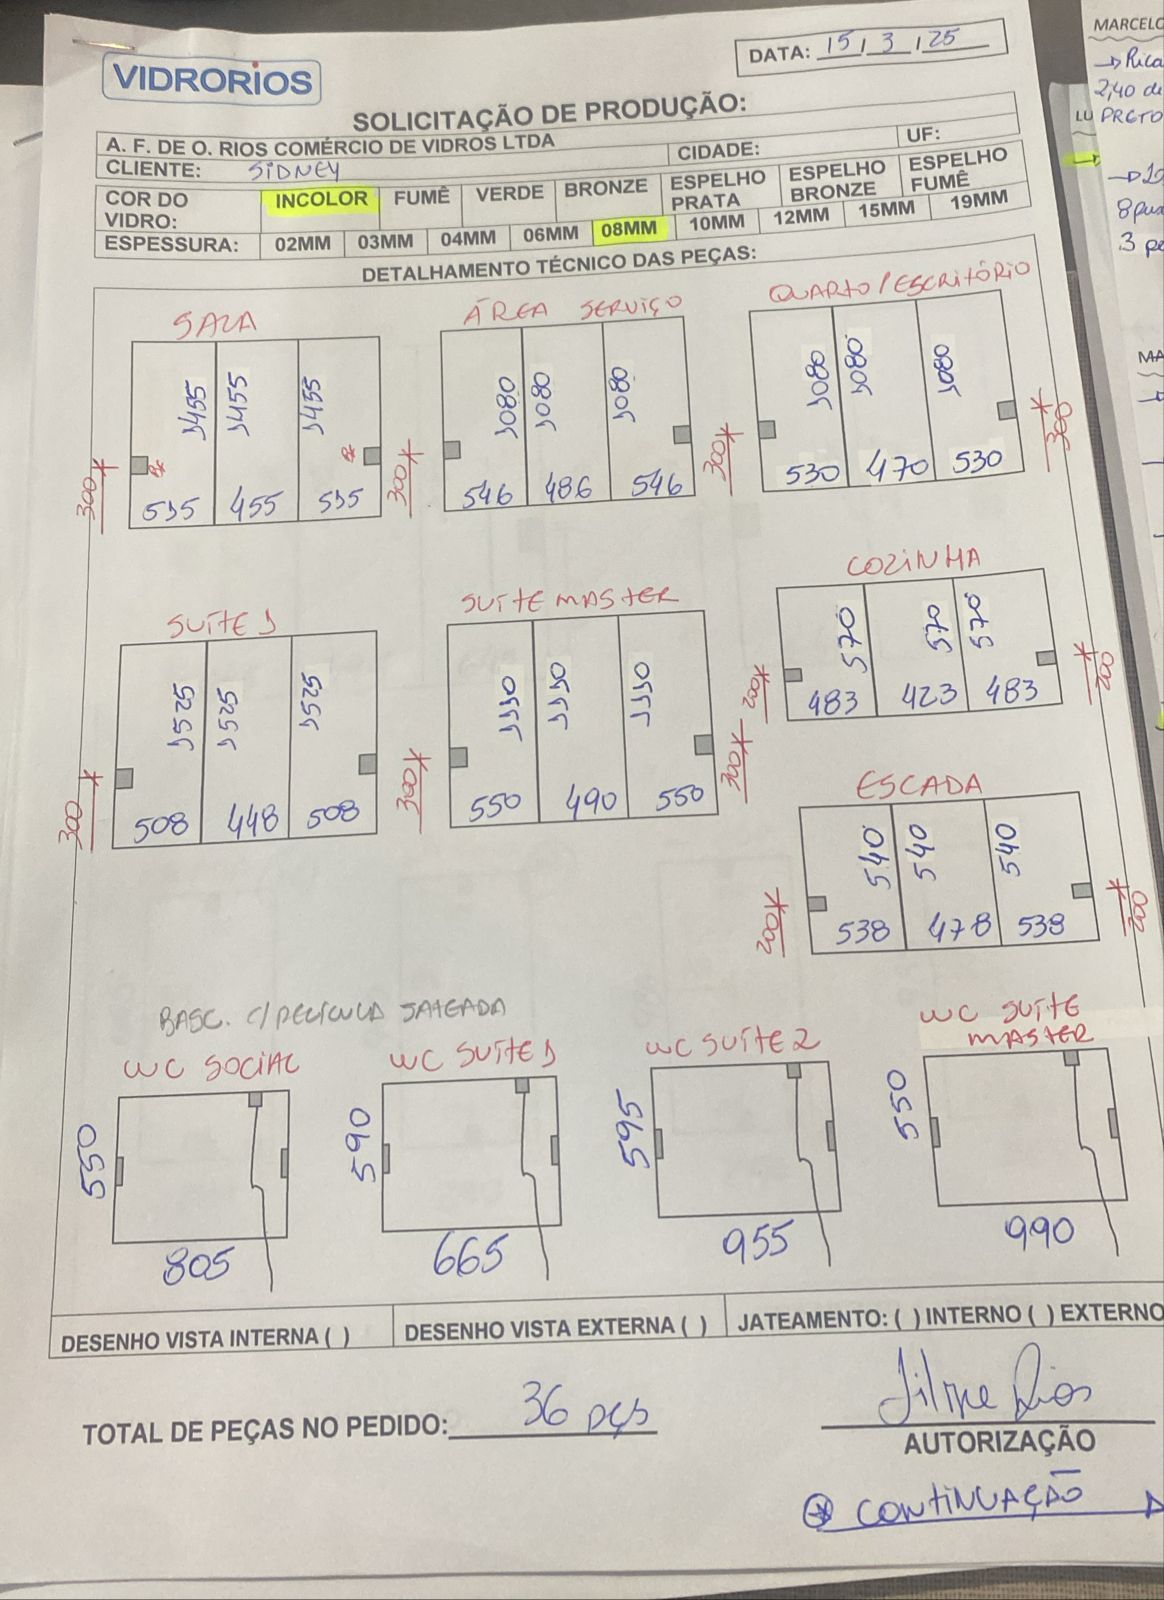 VIDRORIOS
DATA: 15 / 3 / 25
SOLICITAÇÃO DE PRODUÇÃO:
A. F. DE O. RIOS COMÉRCIO DE VIDROS LTDA
CLIENTE: SIDNEY CIDADE: UF:
COR DO VIDRO: INCOLOR FUMÊ VERDE BRONZE ESPELHO PRATA ESPELHO BRONZE ESPELHO FUMÊ
ESPESSURA: 02MM 03MM 04MM 06MM 08MM 10MM 12MM 15MM 19MM
DETALHAMENTO TÉCNICO DAS PEÇAS:
SALA
1455 1455 1455
300 300
535 455 535
ÁREA SERVIÇO
1080 1080 1080
300
546 486 546
QUARTO/ESCRITÓRIO
1080 1080 1080
300
530 470 530
SUÍTE 1
1525 1525 1525
300 300
508 448 508
SUÍTE MASTER
1110 1110 1110
300
550 490 550
COZINHA
570 570 570
200 200
483 423 483
ESCADA
540 540 540
200 200
538 478 538
BASC. C/PELÍCULA JATEADA
WC SOCIAL
550
805
WC SUÍTE 1
590
665
WC SUÍTE 2
595
955
WC SUÍTE
MASTER
550
990
DESENHO VISTA INTERNA ( ) DESENHO VISTA EXTERNA ( ) JATEAMENTO: ( ) INTERNO ( ) EXTERNO
TOTAL DE PEÇAS NO PEDIDO: 36 pçs
Filipe Rios
AUTORIZAÇÃO
CONTINUAÇÃO
MARCELO
2,40 de
LU PRETO
3 pe
MA